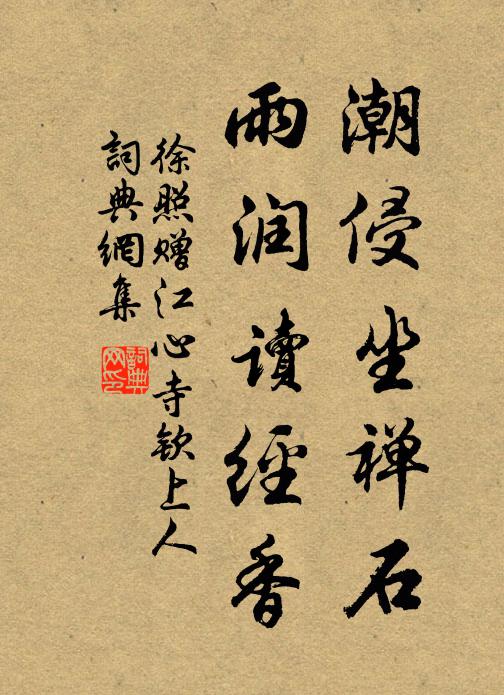 潮侵坐禅石
雨润读經香
徐照赠江心寺钦上人
詞典網集
詞典网印